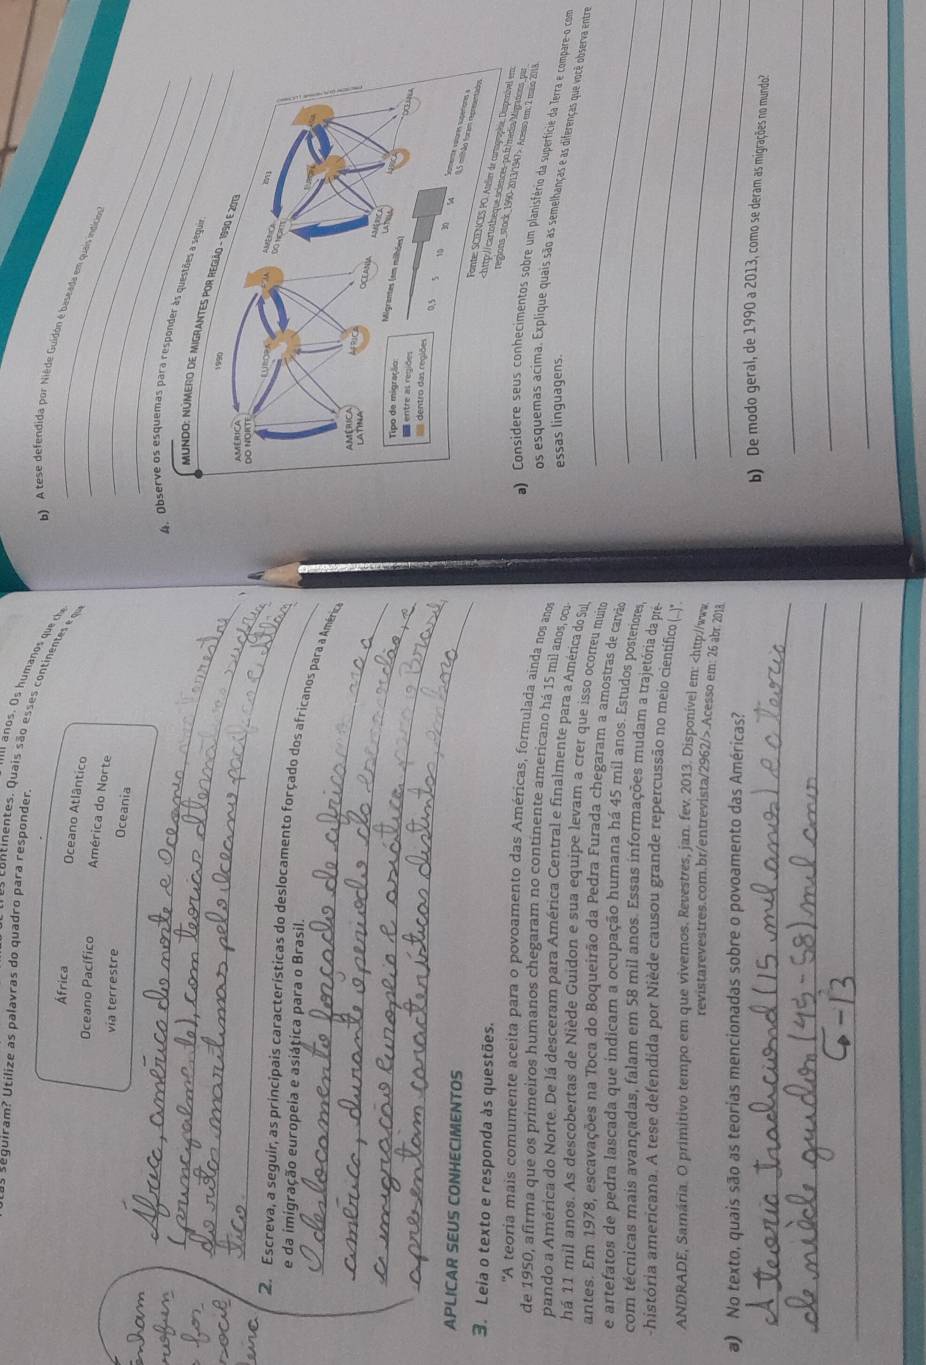 anos. Os humanos que che-
continentes. Quais são esses continentes e que
seguiram? Utilize as palavras do quadro para responder.
África
Oceano Atlântico
Oceano Pacífico
América do Norte
via terrestre
Oceania
África, américa do norte e Oceania
(principalmente), com teorias alternativas sobre
de rotas marítimas pelo oceano pacífico e atlân
tico.
2. Escreva, a seguir, as principais características do deslocamento forçado dos africanos para a América
e da imigração europeia e asiática para o Brasil.
O deslocamento forçado de africanos
américa, durante o período da
a imigração europeia e asiática para o Brasil
apresentam características distintas,
APLICAR SEUS CONHECIMENTOS
3. Leia o texto e responda às questões.
"A teoria mais comumente aceita para o povoamento das Américas, formulada ainda nos anos
de 1950, afirma que os primeiros humanos chegaram no continente americano há 15 mil anos, ocu-
pando a América do Norte. De lá desceram para América Central e finalmente para a América do Sul,
há 11 mil anos. As descobertas de Niède Guidon e sua equipe levam a crer que isso ocorreu muito
antes. Em 1978, escavações na Toca do Boqueirão da Pedra Furada chegaram a amostras de carvão
e artefatos de pedra lascada que indicam a ocupação humana há 45 mil anos. Estudos posteriores,
com técnicas mais avançadas, falam em 58 mil anos. Essas informações mudam a trajetória da pré-
-história americana. A tese defendida por Niède causou grande repercussão no meio científico (...)."
ANDRADE, Samária. O primitivo tempo em que vivemos. Revestres, jan. fev. 2013. Disponível em: <http://www.
revistarevestres.com.br/entrevista/2962/>. Acesso em: 26 abr. 2018.
a) No texto, quais são as teorias mencionadas sobre o povoamento das Américas?
A teoria tradicional (15 mil anos) e a teoria
de niède guidon (45-58) mil anos
13
b) A tese defendida por Niède Guidon é baseada em quais indícios?
4. Observe os esquemas para responder às questões a seguir.
MUNDO: NÚMERO DE MIGRANTES POR REGIÃO – 1990 E 2013
1990
AMÉRICA
DO NORTE
EUROPA
ÁSIA
AMÉRICA
LATINA
ÁFRICA
OCEANIA
2013
AMÉRICA
DO NORTE
EUROPA
ÁSIA
AMÉRICA
LATINA
ÁFRICA
OCEANIA
Tipo de migração:
entre as regiões
dentro das regiões
Migrantes (em milhões)
0,5 5 10 30 54
Somente valores superiores a
0,5 milhão foram representados
Fonte: SCIENCES PO. Atelier de cartographie. Disponível em:
a) Considere seus conhecimentos sobre um planisfério da superfície da Terra e compare-o com
os esquemas acima. Explique quais são as semelhanças e as diferenças que você observa entre
essas linguagens.
b) De modo geral, de 1990 a 2013, como se deram as migrações no mundo?